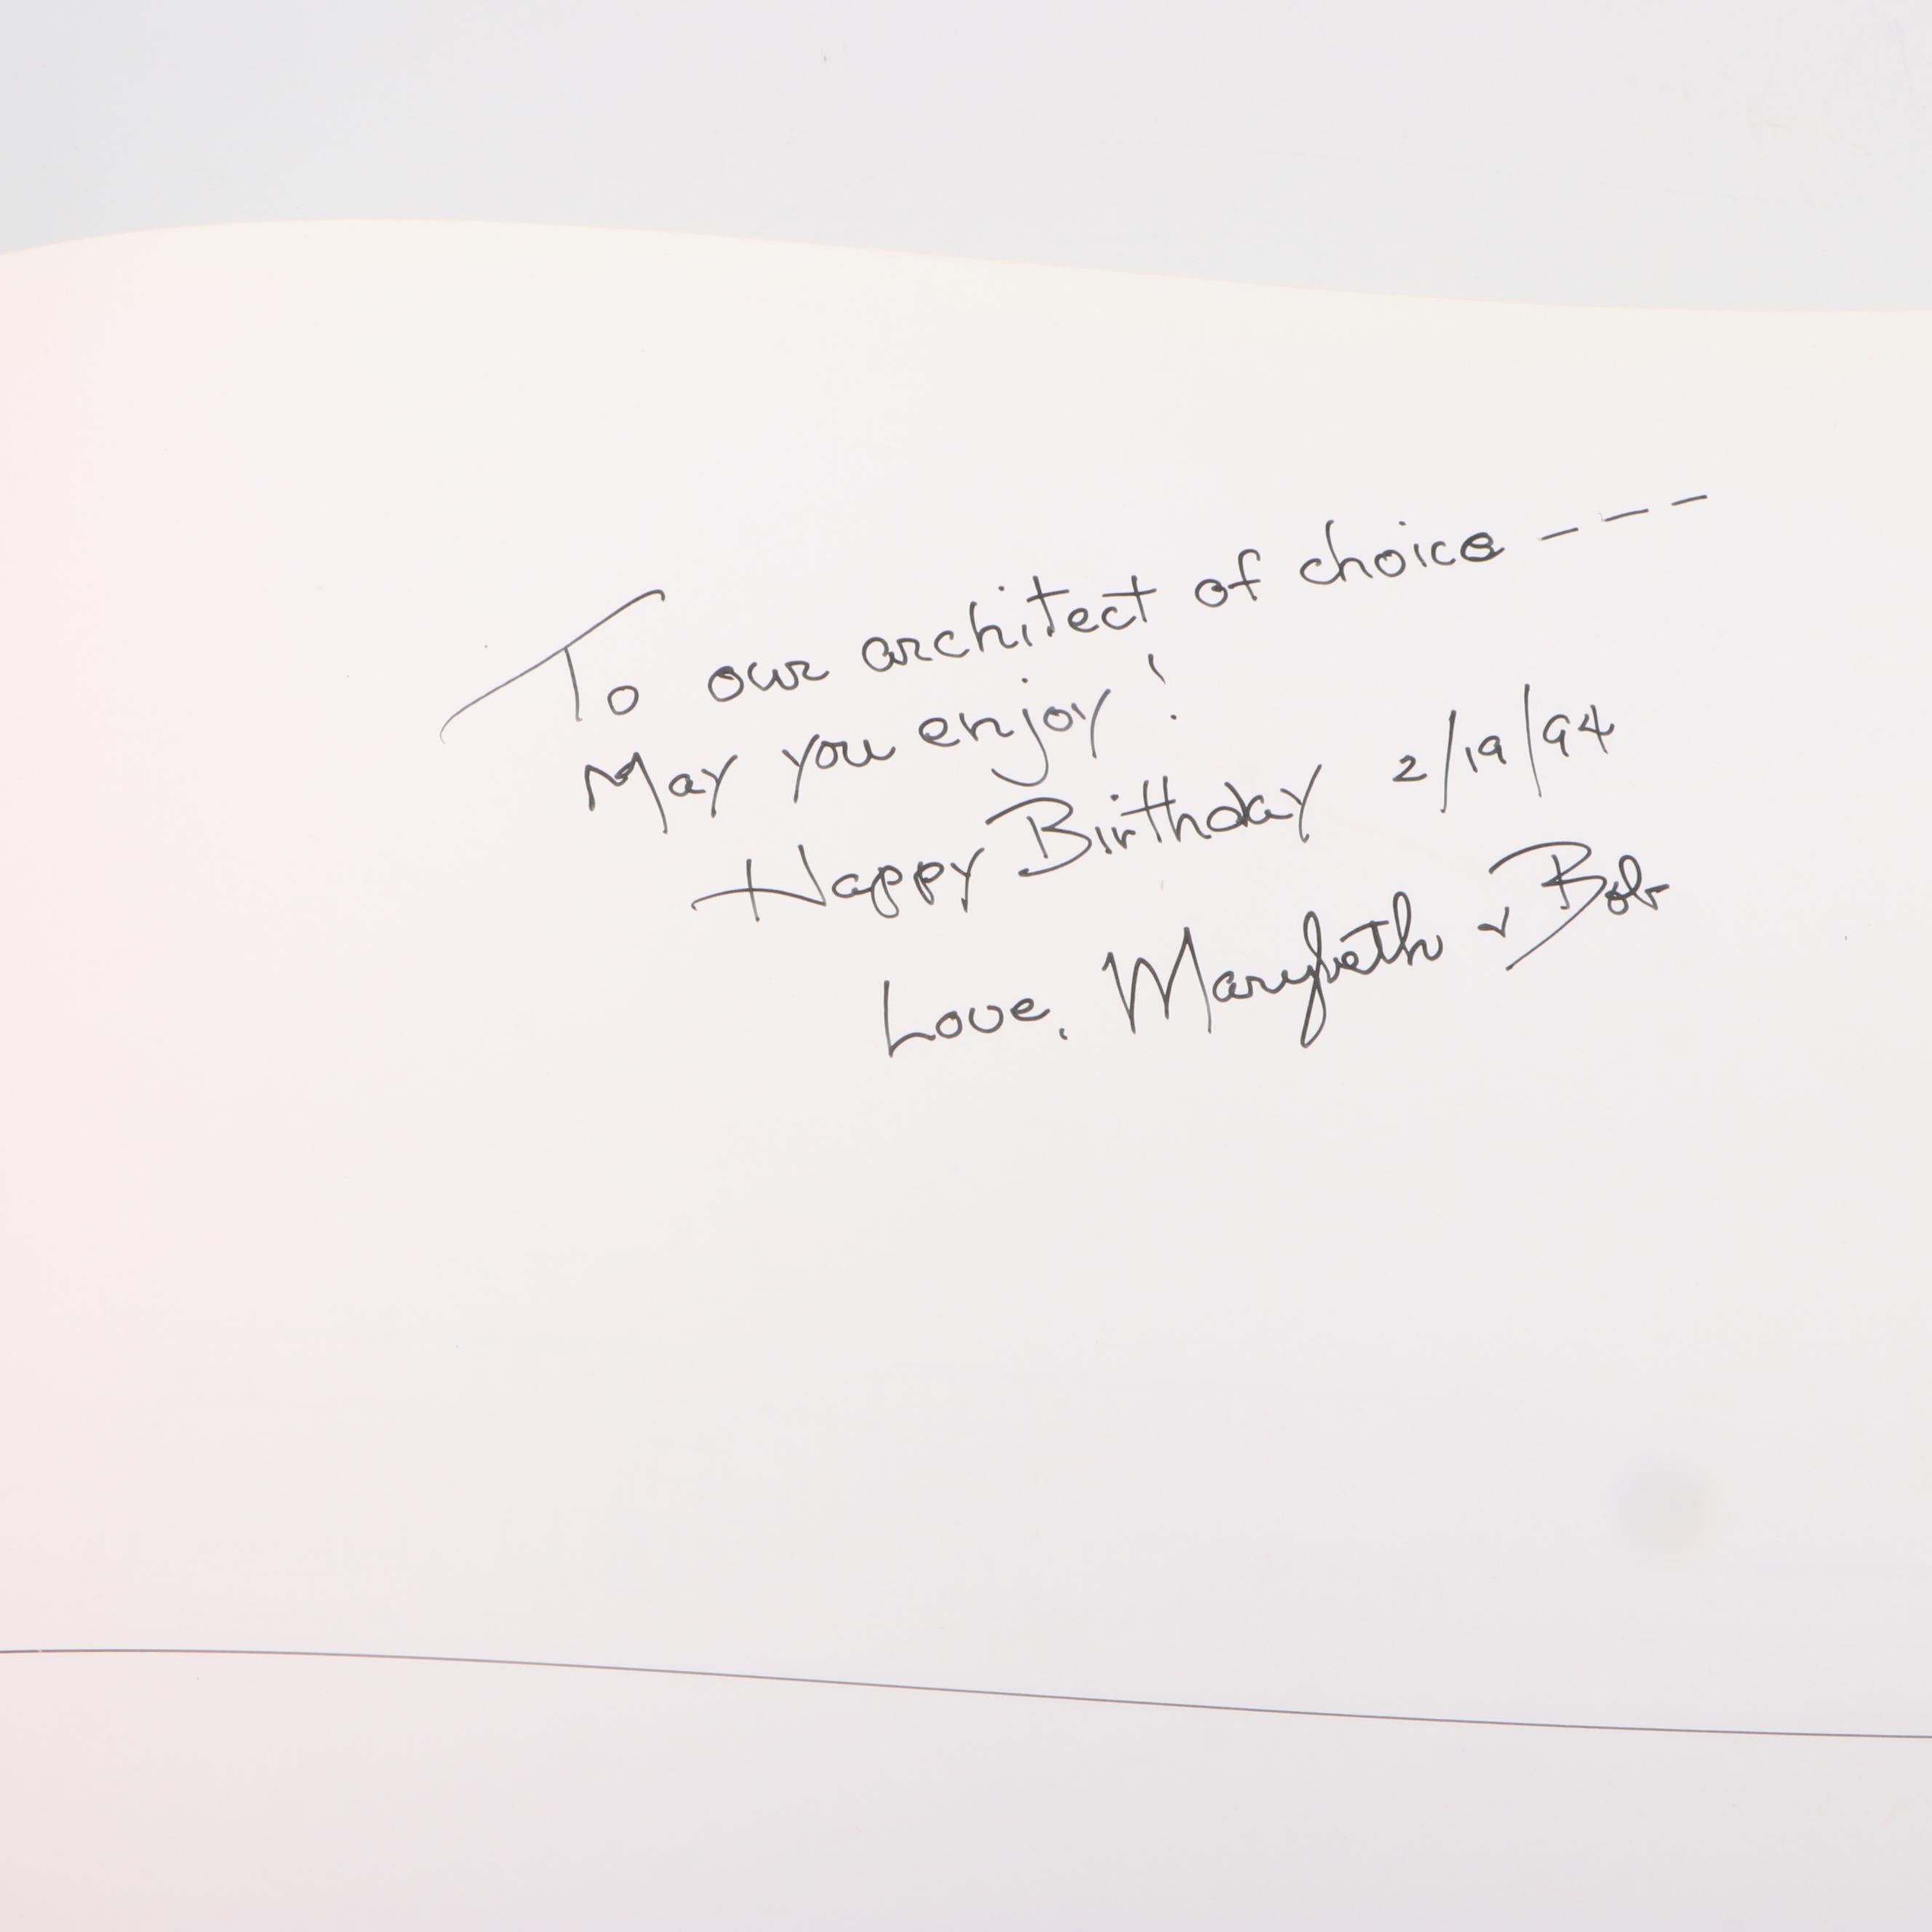 To our architect of choice ---
May you enjoy!
Happy Birthday 2/19/94
Love, Marybeth & Bob